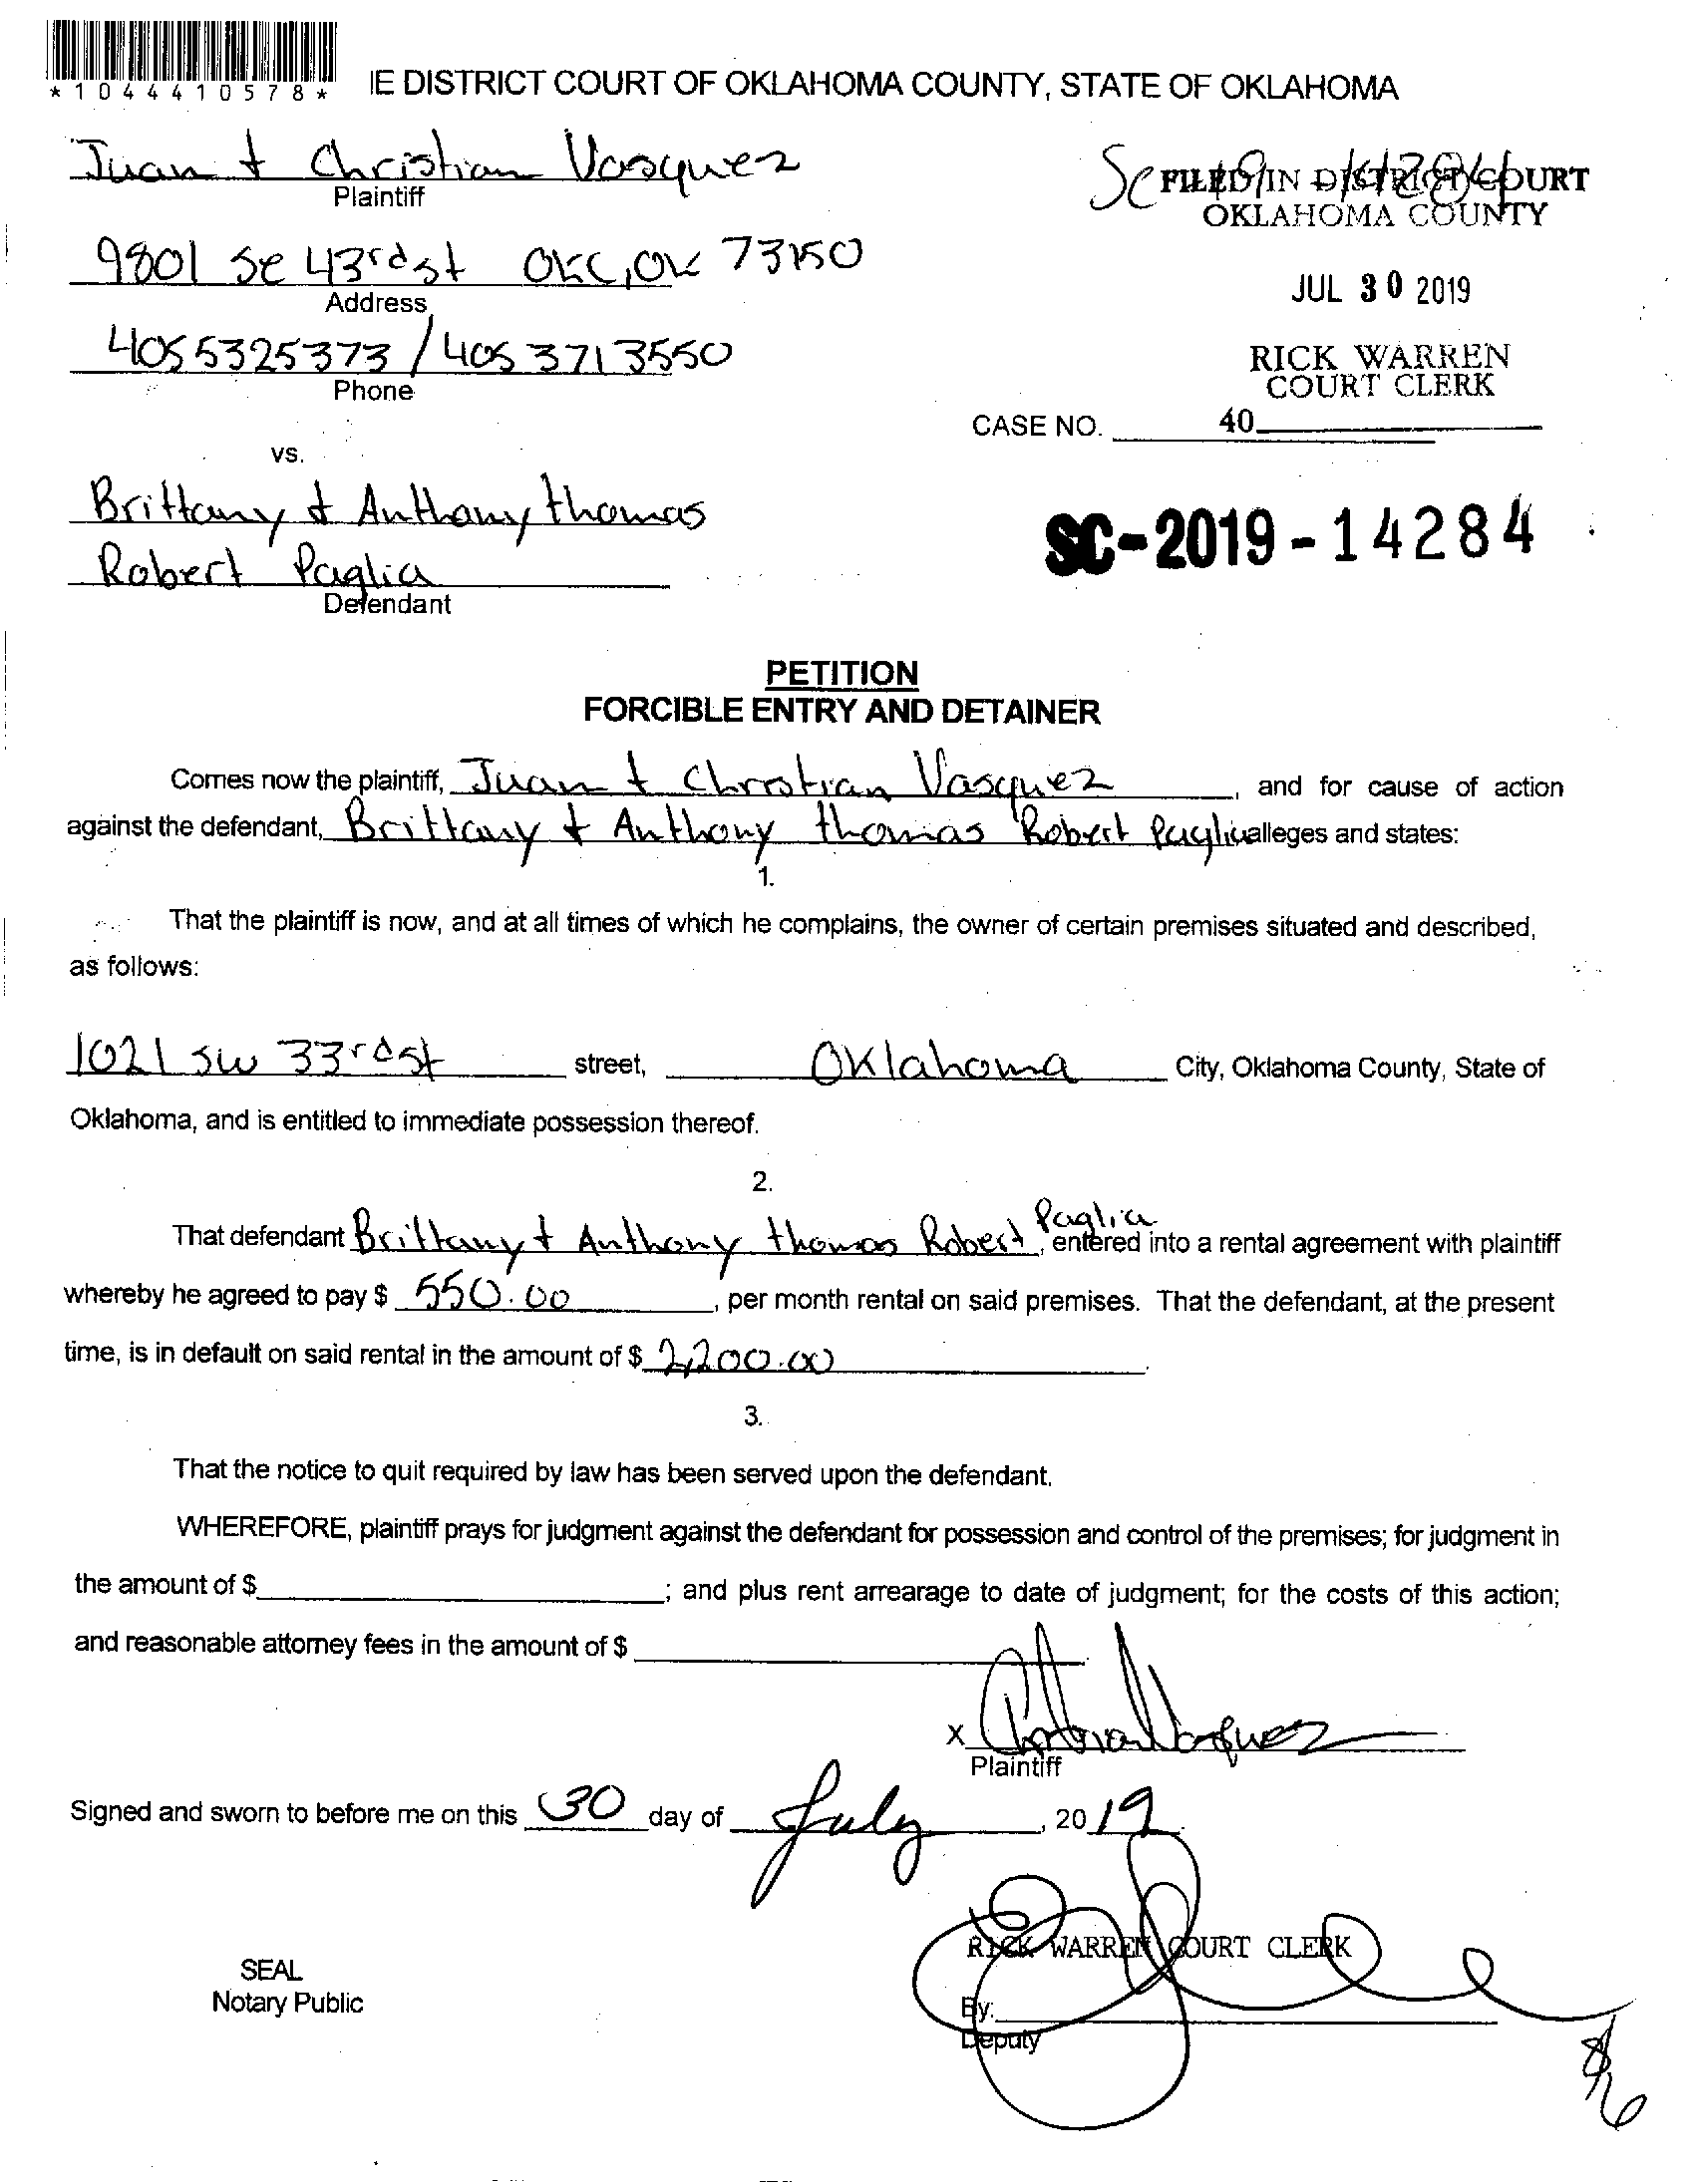 *1044410578*
IE DISTRICT COURT OF OKLAHOMA COUNTY, STATE OF OKLAHOMA
Juan + Christian Vasquez
Plaintiff
FILED IN DISTRICT COURT
OKLAHOMA COUNTY
9801 SE 43rd st OKC, OK 73150
Address
JUL 30 2019
4055325373 / 4053713550
Phone
RICK WARREN
COURT CLERK
CASE NO. 40
vs.
Brittany + Anthony thomas
Robert Paglia
Defendant
SC-2019-14284
PETITION
FORCIBLE ENTRY AND DETAINER
Comes now the plaintiff, Juan + Christian Vasquez, and for cause of action
against the defendant, Brittany + Anthony thomas Robert Paglia alleges and states:
1.
That the plaintiff is now, and at all times of which he complains, the owner of certain premises situated and described,
as follows:
1021 SW 33rd st street, Oklahoma City, Oklahoma County, State of
Oklahoma, and is entitled to immediate possession thereof.
2.
That defendant Brittany + Anthony thomas Robert Paglia, entered into a rental agreement with plaintiff
whereby he agreed to pay $ 550.00, per month rental on said premises. That the defendant, at the present
time, is in default on said rental in the amount of $ 2,200.00.
3.
That the notice to quit required by law has been served upon the defendant.
WHEREFORE, plaintiff prays for judgment against the defendant for possession and control of the premises; for judgment in
the amount of $ ; and plus rent arrearage to date of judgment; for the costs of this action;
and reasonable attorney fees in the amount of $ .
X Christian Vasquez
Plaintiff
Signed and sworn to before me on this 30 day of July, 2019.
RICK WARREN COURT CLERK
SEAL
Notary Public
By:
Deputy
8/6